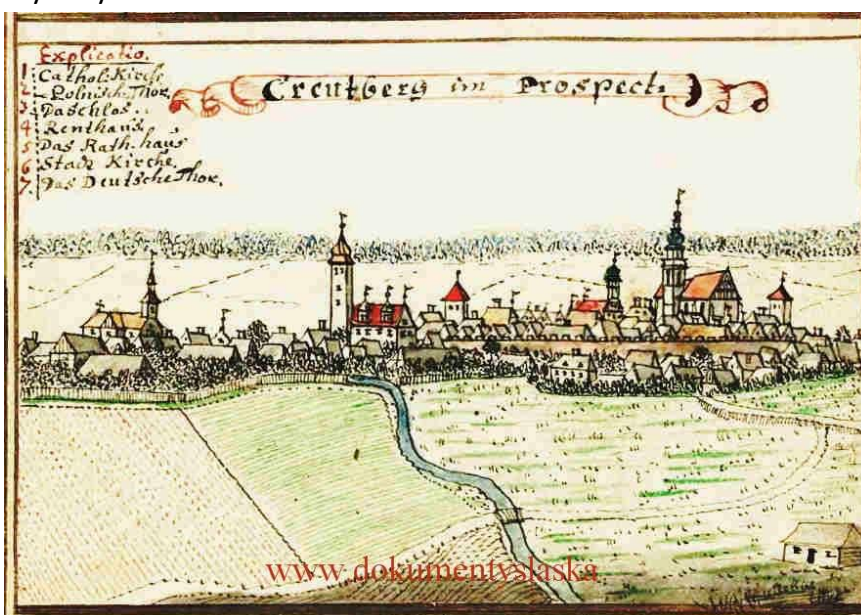 Explicatio.
1 Cathol. Kirche
2 Polnisch Thor.
3. Das Schlos..
4 Renthaus
5 Das Rath. haus
6 Stadt Kirche.
7. Das Deutsche Thor.
Creutberg im Prospect.
www.dokumentyslaska